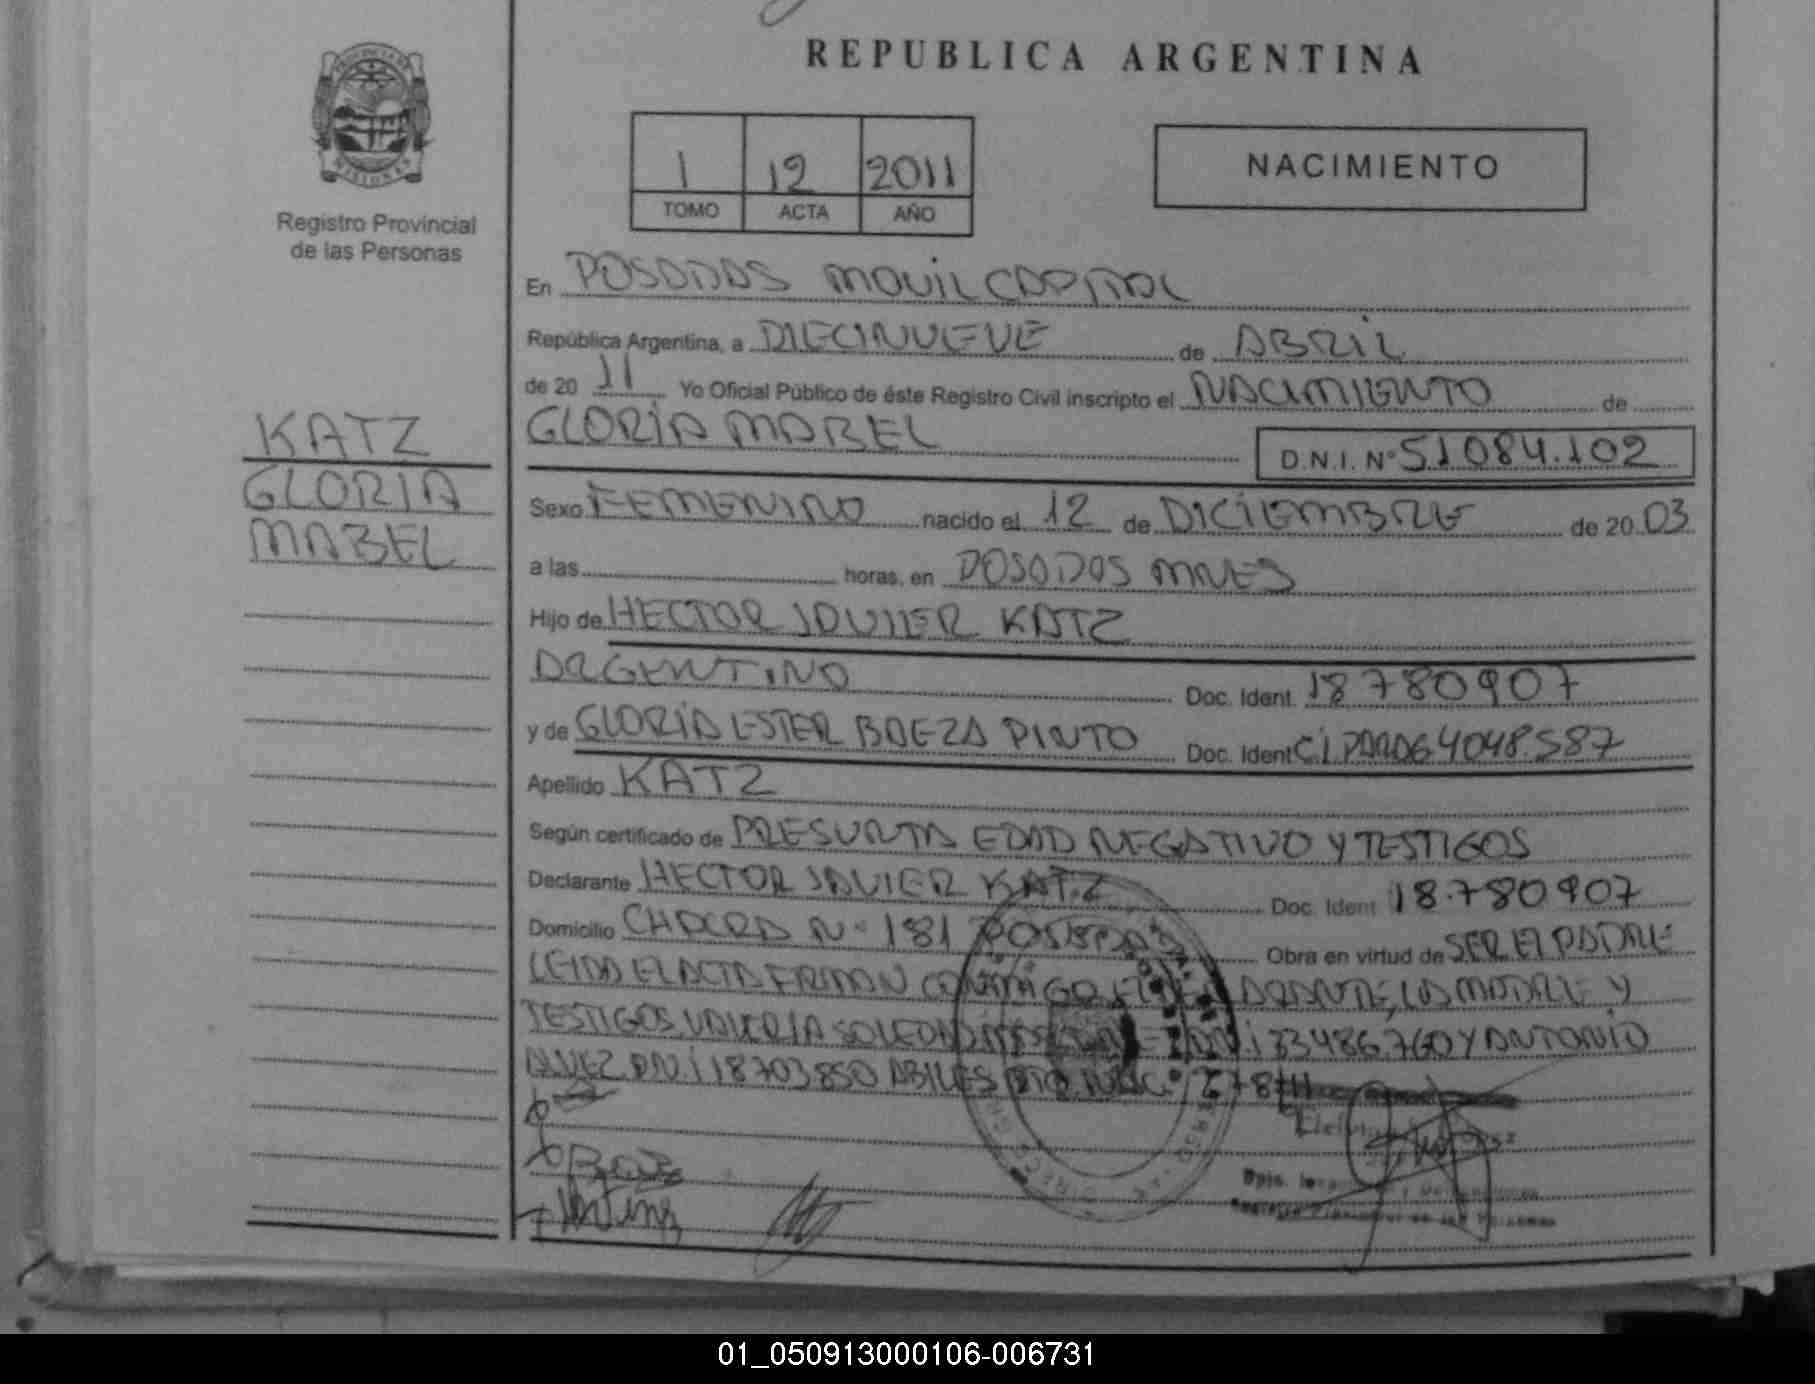 REPUBLICA ARGENTINA
PROVINCIA DE
MISIONES
Registro Provincial
de las Personas
1 12 2011
TOMO ACTA AÑO
NACIMIENTO
KATZ
GLORIA
MABEL
En POSADAS MOVIL CAPITAL
República Argentina, a DIECINUEVE de ABRIL
de 20 11 Yo Oficial Público de éste Registro Civil inscripto el NACIMIENTO de
GLORIA MABEL D.N.I. Nº 51.084.102
Sexo FEMENINO nacido el 12 de DICIEMBRE de 20 03
a las horas, en POSADAS MNES
Hijo de HECTOR JAVIER KATZ
ARGENTINO Doc. Ident. 18780907
y de GLORIA ESTER BAEZA PINTO Doc. Ident C.I. PARAG 4048.587
Apellido KATZ
Según certificado de PRESUNTA EDAD NEGATIVO Y TESTIGOS
Declarante HECTOR JAVIER KATZ Doc. Ident 18.780907
Domicilio CHACRA Nº 181 POSADAS Obra en virtud de SER EL PADRE
LEIDA EL ACTA FIRMAN CONMIGO EL DECLARANTE, LA MADRE Y
TESTIGOS VALERIA SOLEDAD DNI 33486760 Y ANTONIO
DNI 18703850
01_050913000106-006731